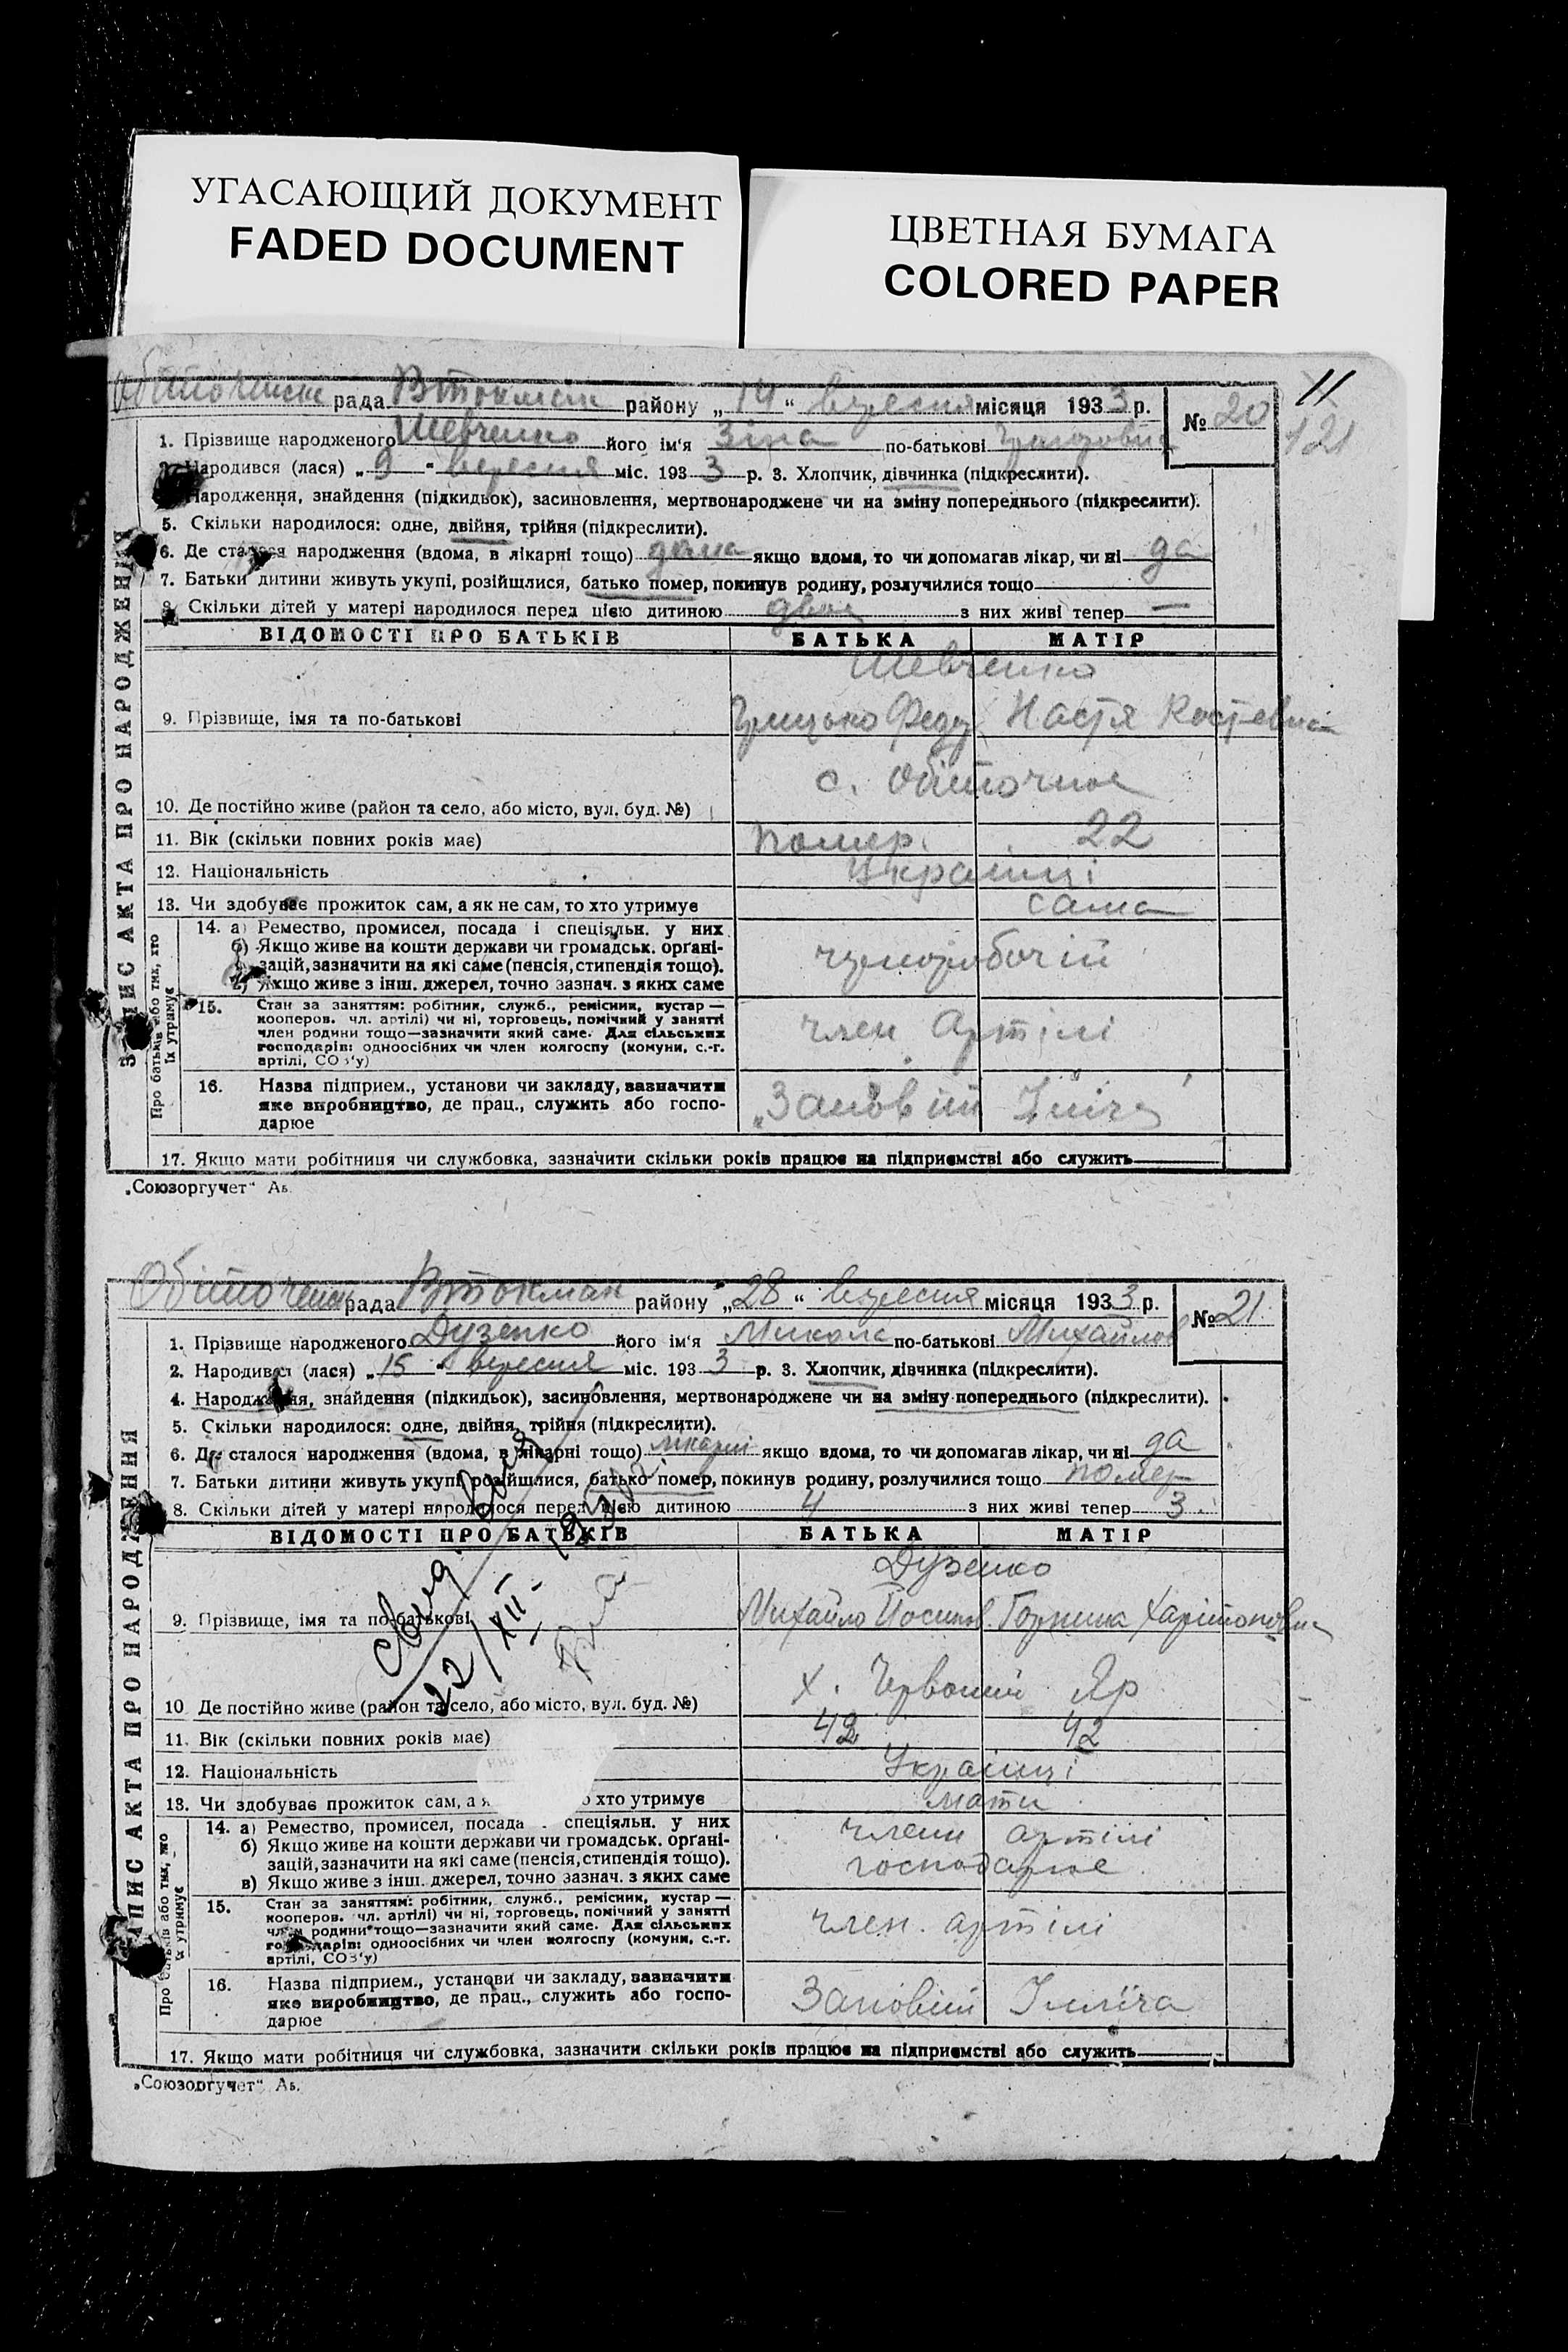 УГАСАЮЩИЙ ДОКУМЕНТ
FADED DOCUMENT
ЦВЕТНАЯ БУМАГА
COLORED PAPER
11
121
рада В Токмак району „14“ вересня місяця 1933 р.
№ 20
1. Прізвище народженого Шевченко його ім'я Зіна по-батькові
Народився (лася) „9“ вересня міс. 1933 р. 3. Хлопчик, дівчинка (підкреслити).
Народження, знайдення (підкидьок), засиновлення, мертвонароджене чи на зміну попереднього (підкреслити).
5. Скільки народилося: одне, двійня, трійня (підкреслити).
6. Де сталося народження (вдома, в лікарні тощо) дома якщо вдома, то чи допомагав лікар, чи ні да
7. Батьки дитини живуть укупі, розійшлися, батько помер, покинув родину, розлучилися тощо
8. Скільки дітей у матері народилося перед цією дитиною двое з них живі тепер —
ВІДОМОСТІ ПРО БАТЬКІВ БАТЬКА МАТІР
Шевченко
9. Прізвище, імя та по-батькові Грицько Фед Настя Костевна
с. Обіточне
10. Де постійно живе (район та село, або місто, вул. буд. №)
11. Вік (скільки повних років має) помер. 22
12. Національність Українці
13. Чи здобуває прожиток сам, а як не сам, то хто утримує сама
14. а) Ремество, промисел, посада і спеціяльн. у них
б) Якщо живе на кошти держави чи громадськ. орґані-
зацій, зазначити на які саме (пенсія, стипендія тощо).
в) Якщо живе з інш. джерел, точно зазнач. з яких саме
чорноробочій
15. Стан за заняттям: робітник, служб., ремісник, кустар —
кооперов. чл. артілі) чи ні, торговець, помічний у занятті
член родини тощо—зазначити який саме. Для сільських
господарів: одноосібних чи член колгоспу (комуни, с.-г.
артілі, СОЗ'у)
член Артілі
16. Назва підприєм., установи чи закладу, зазначити
яке виробництво, де прац., служить або госпо-
дарює
„Заповіти Ілліча
17. Якщо мати робітниця чи службовка, зазначити скільки років працює на підприємстві або служить
ЗАПИС АКТА ПРО НАРОДЖЕННЯ
Про батьків або тих, хто
їх утримує
„Союзоргучет“ Аь.
рада В Токмак району „28“ вересня місяця 1933 р.
№ 21
1. Прізвище народженого Дузенко його ім'я Микола по-батькові Михайлов
2. Народився (лася) „15“ вересня міс. 1933 р. 3. Хлопчик, дівчинка (підкреслити).
4. Народження, знайдення (підкидьок), засиновлення, мертвонароджене чи на зміну попереднього (підкреслити).
5. Скільки народилося: одне, двійня, трійня (підкреслити).
6. Де сталося народження (вдома, в лікарні тощо) лікарні якщо вдома, то чи допомагав лікар, чи ні да
7. Батьки дитини живуть укупі, розійшлися, батько помер, покинув родину, розлучилися тощо помер
8. Скільки дітей у матері народилося перед цією дитиною 4 з них живі тепер 3
ВІДОМОСТІ ПРО БАТЬКІВ БАТЬКА МАТІР
Дузенко
9. Прізвище, імя та по-батькові Михайло Йосипов. Горпина Харітоновна
х. Червоний Яр
10 Де постійно живе (район та село, або місто, вул. буд. №)
11. Вік (скільки повних років має) 42 42
12. Національність Українці
13. Чи здобуває прожиток сам, а я хто утримує мати
14. а) Ремество, промисел, посада спеціяльн. у них
б) Якщо живе на кошти держави чи громадськ. орґані-
зацій, зазначити на які саме (пенсія, стипендія тощо).
в) Якщо живе з інш. джерел, точно зазнач. з яких саме
члени артілі
господарює
15. Стан за заняттям: робітник, служб., ремісник, кустар —
кооперов. чл. артілі) чи ні, торговець, помічний у занятті
член родини тощо—зазначити який саме. Для сільських
господарів: одноосібних чи член колгоспу (комуни, с.-г.
артілі, СОЗ'у)
член. артілі
16. Назва підприєм., установи чи закладу, зазначити
яке виробництво, де прац., служить або госпо-
дарює
Заповіти Ілліча
17. Якщо мати робітниця чи службовка, зазначити скільки років працює на підприємстві або служить
ЗАПИС АКТА ПРО НАРОДЖЕННЯ
22/XII-
„Союзоргучет“ Аь.